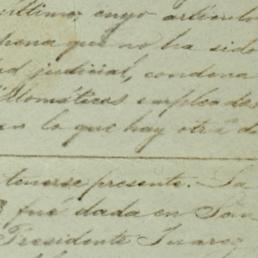 último, cuyo artículo
pena que no ha sido
judicial, condena
empleados
lo que hay otra d
tenerse presente. La
fué dada en San
Presidente Juarez